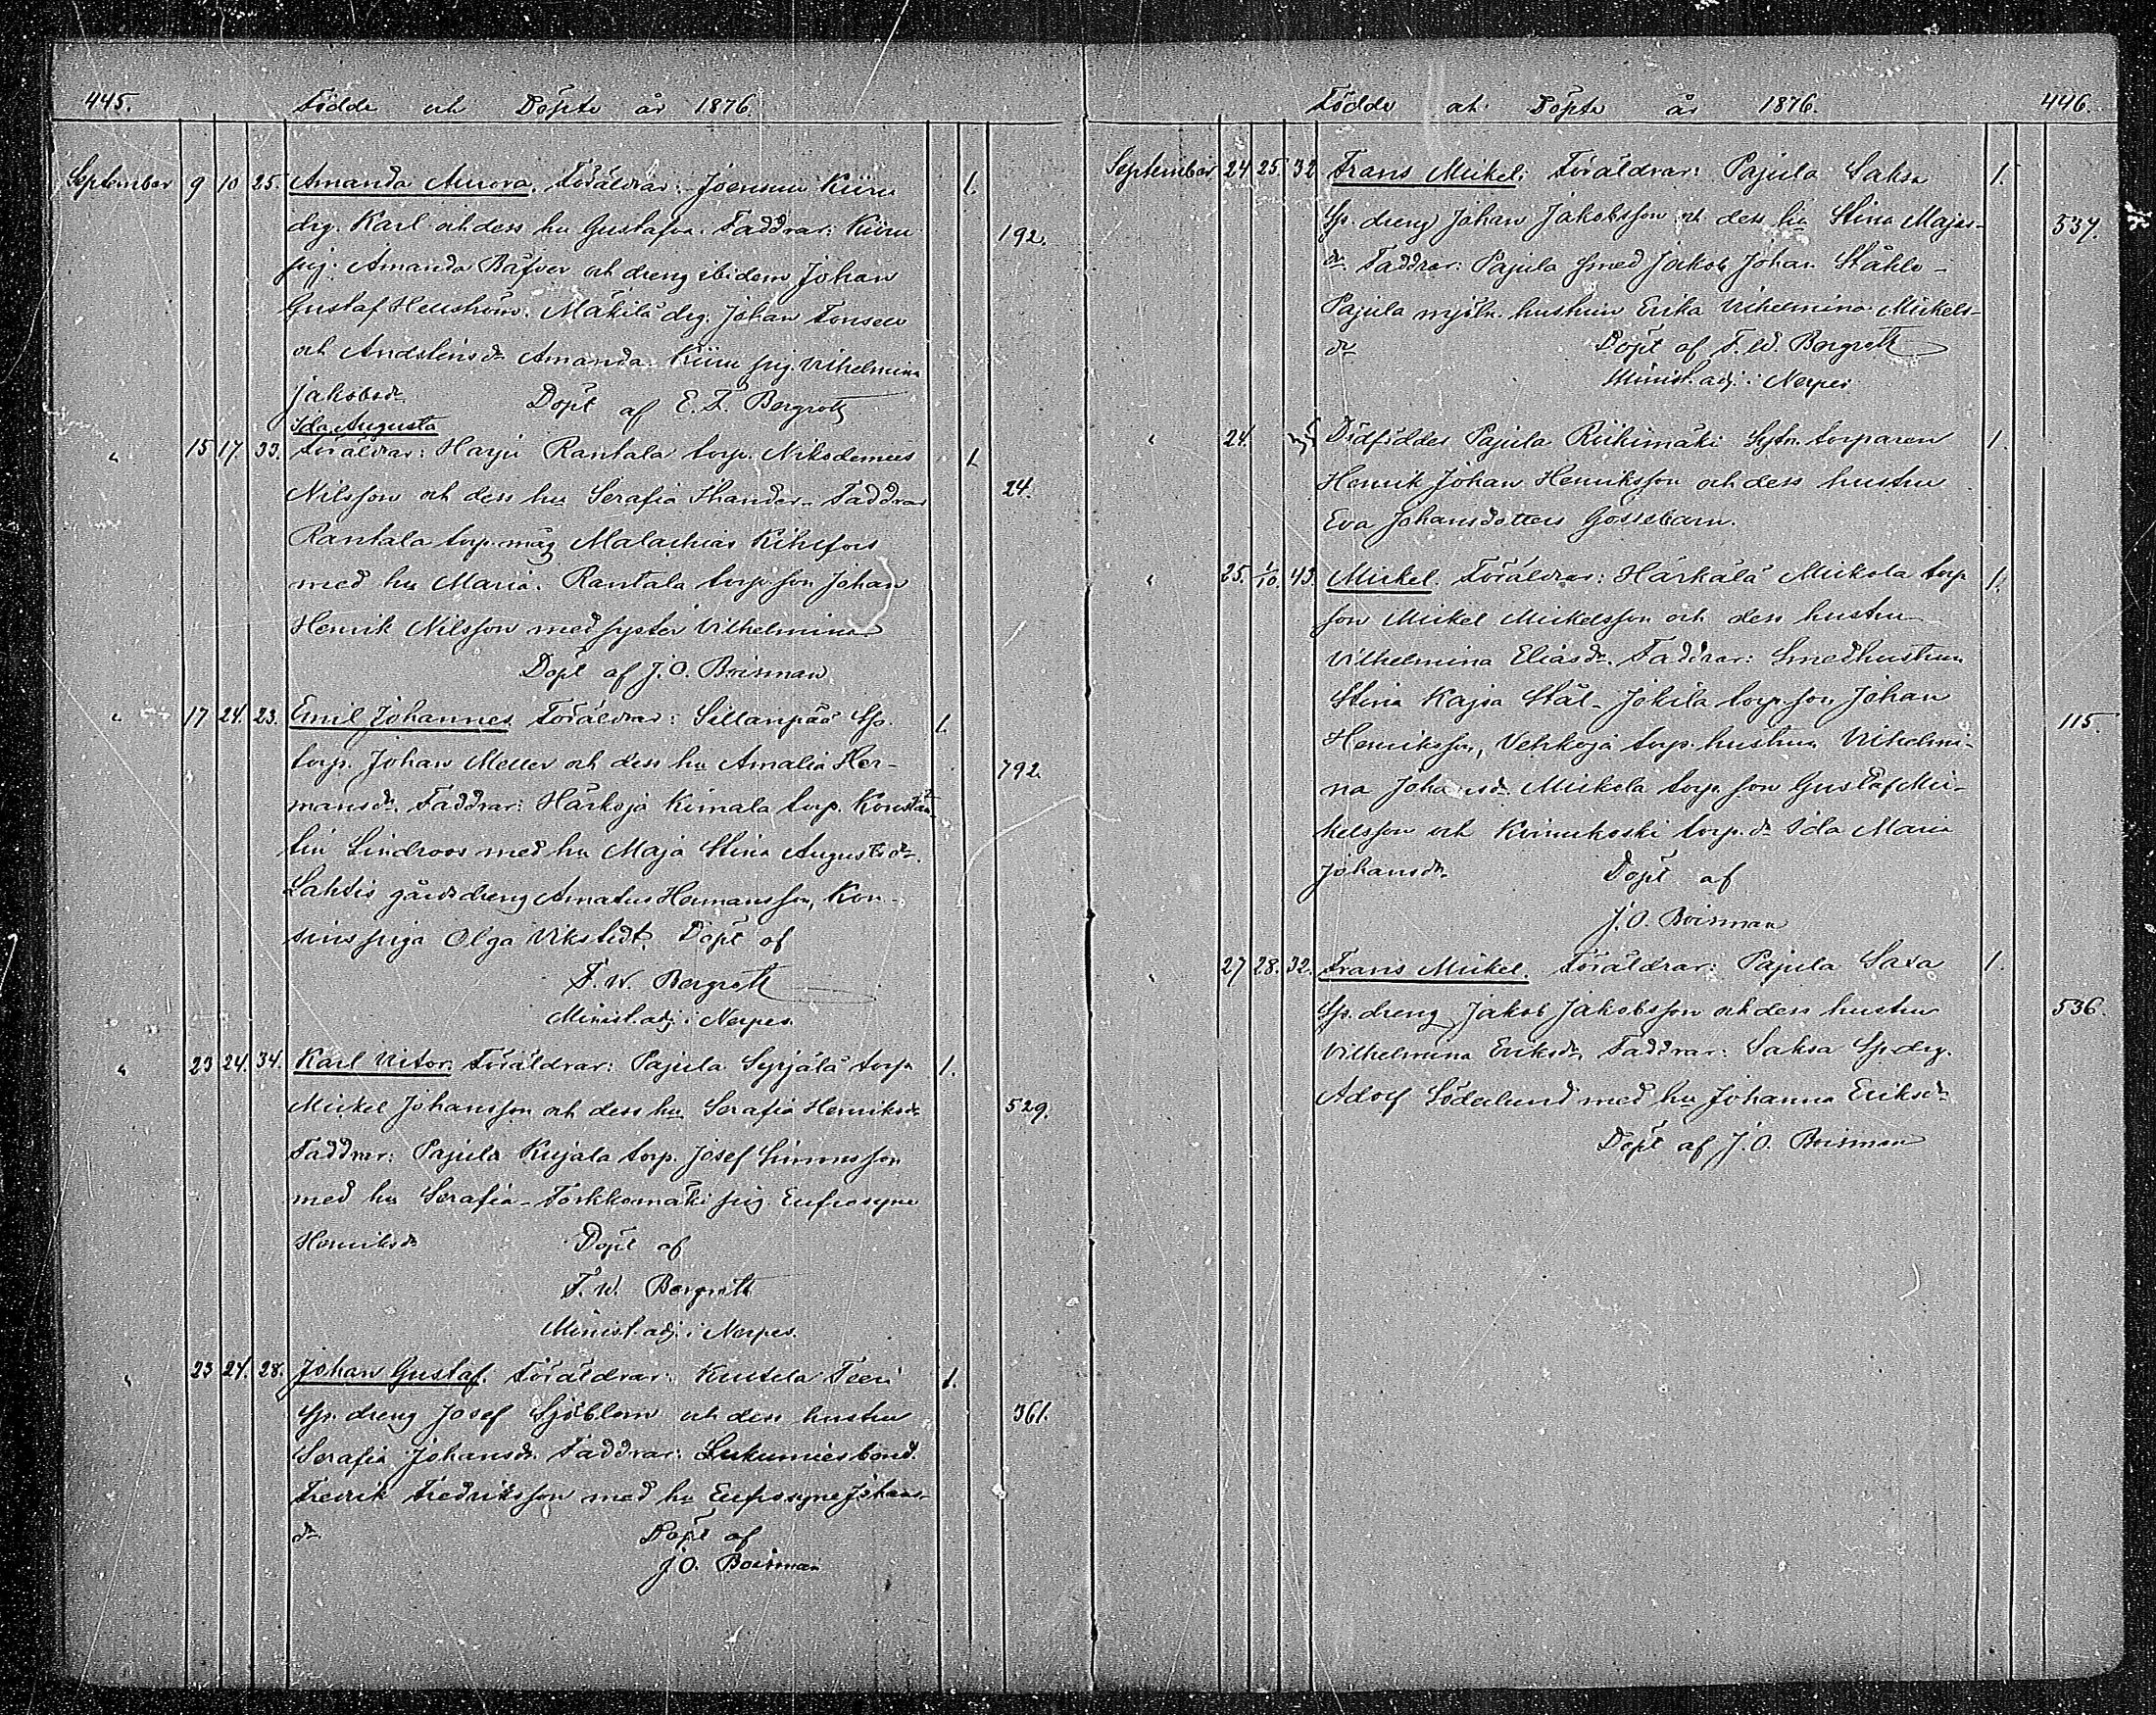 445. Födde och Döpte år 1876.
September 9 10 25. Amanda Aurora. Föräldrar: Joensuu Kiiru 1.
drg. Karl och dess hu Gustafva. Faddrar: Kiiru 192.
pig. Amanda Bäfver och dreng ibidem Johan
Gustaf Hellström. Mäkilä drg. Johan Tonseen
och Andstensdr Amanda. Kiiru pig. Vilhelmina
Jakobsdr. Döpt af E. J. Bergroth
Ida Augusta
" 15 17. 33. Föräldrar: Harju Rantala torp. Nikodemus 1.
Nilsson och dess hu Serafia Thander. Faddrar 24.
Rantala torp. måg Malachias Kihlfors
med hu Maria. Rantala torp. son Johan
Henrik Nilsson med syster Vilhelmina
Döpt af J. O. Boisman.
" 17 24. 23. Emil Johannes. Föräldrar: Sillanpää Sp. 1.
torp. Johan Meller och dess hu Amalia Her- 792.
mansdr. Faddrar: Härkoja Kimala torp. Konstan-
tin Lindroos med hu Maja Stina Augustsdr.
Lahdis gårdsdreng Amatus Hermansson, Kon-
sins piga Olga Vikstedt. Döpt af
F. W. Bergroth
Minist. adj. i Nerpes.
" 23 24. 34. Karl Vitor. Föräldrar: Pajula Syrjälä torp. 1.
Mickel Johansson och dess hu Serafia Henriksdr 529.
Faddrar: Pajula Kujala torp. Josef Simonsson
med hu Serafia. Torkkomäki pig. Eufrosyne
Henriksdr Döpt af
F. W. Bergroth
Minist. adj. i Nerpes.
" 23 24. 28. Johan Gustaf. Föräldrar: Kuusela Teeri 1.
Sp. dreng Josef Sjöblom och dess hustru 361.
Serafia Johansdr. Faddrar: Lukumies bond.
Fredrik Fredriksson med hu Eufrosyne Johans-
dr Döpt af
J. O. Boisman
Födde och Döpte år 1876. 446.
September 24 25. 32 Frans Mickel: Föräldrar: Pajula Saksa 1.
Sp. dreng Johan Jakobsson och dess hu Stina Majas- 537.
dr. Faddrar: Pajula smed Jakob Johan Ståhle -
Pajula mjöln. hustrun Erika Vilhelmina Mickels-
dr Döpt af F. W. Bergroth
Minist. adj. i Nerpes
" 24. Dödföddes Pajula Riihimäki Sytn. torparen 1.
Henrik Johan Henriksson och dess hustru
Eva Johansdotters Gossebarn.
" 25. 1/10. 43. Mickel. Föräldrar: Härkälä Mickola torp. 1.
son Mickel Mickelsson och dess hustru
Vilhelmina Eliasdr. Faddrar: Smedhustrun
Stina Kajsa Stål - Jokila torp. son Johan 115.
Henriksson, Vehkoja torp. hustrun Vilhelmi-
na Johansdr. Mickola torp. son Gustaf Mic-
kelsson och Koivukoski torp. dr Ida Maria
Johansdr. Döpt af
J. O. Boisman
" 27 28. 32. Frans Mickel. Föräldrar: Pajula Saxa 1.
Sp. dreng Jakob Jakobsson och dess hustru 536.
Vilhelmina Eriksdr. Faddrar: Saksa Sp. drg.
Adolf Söderlund med hu Johanna Eriksdr.
Döpt af J. O. Boisman